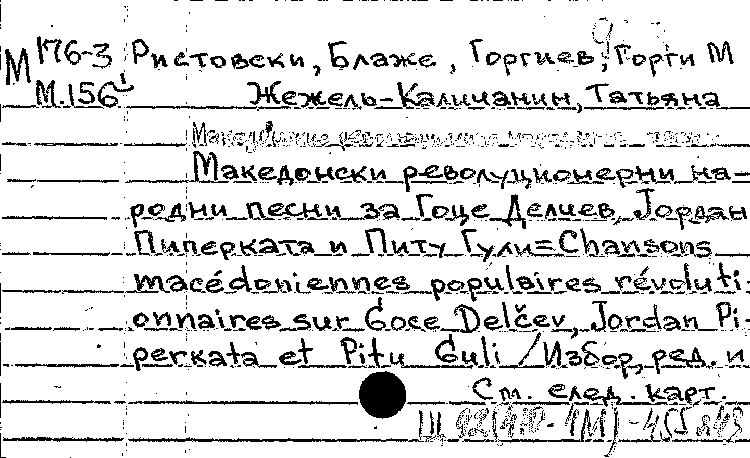 М 176-3 Ристовски, Блаже, Горгиев, Горги М
М.156 Жежель-Каличанин, Татьяна
Македонски револуционерни на-
родни песни за Гоце Делчев, Јордан
Пиперката и Питу Гули=Chansons
macédoniennes populaires révoluti-
onnaires sur Goce Delčev, Jordan Pi-
perkata et Pitu Guli / Избор, ред. и
См. след. карт.